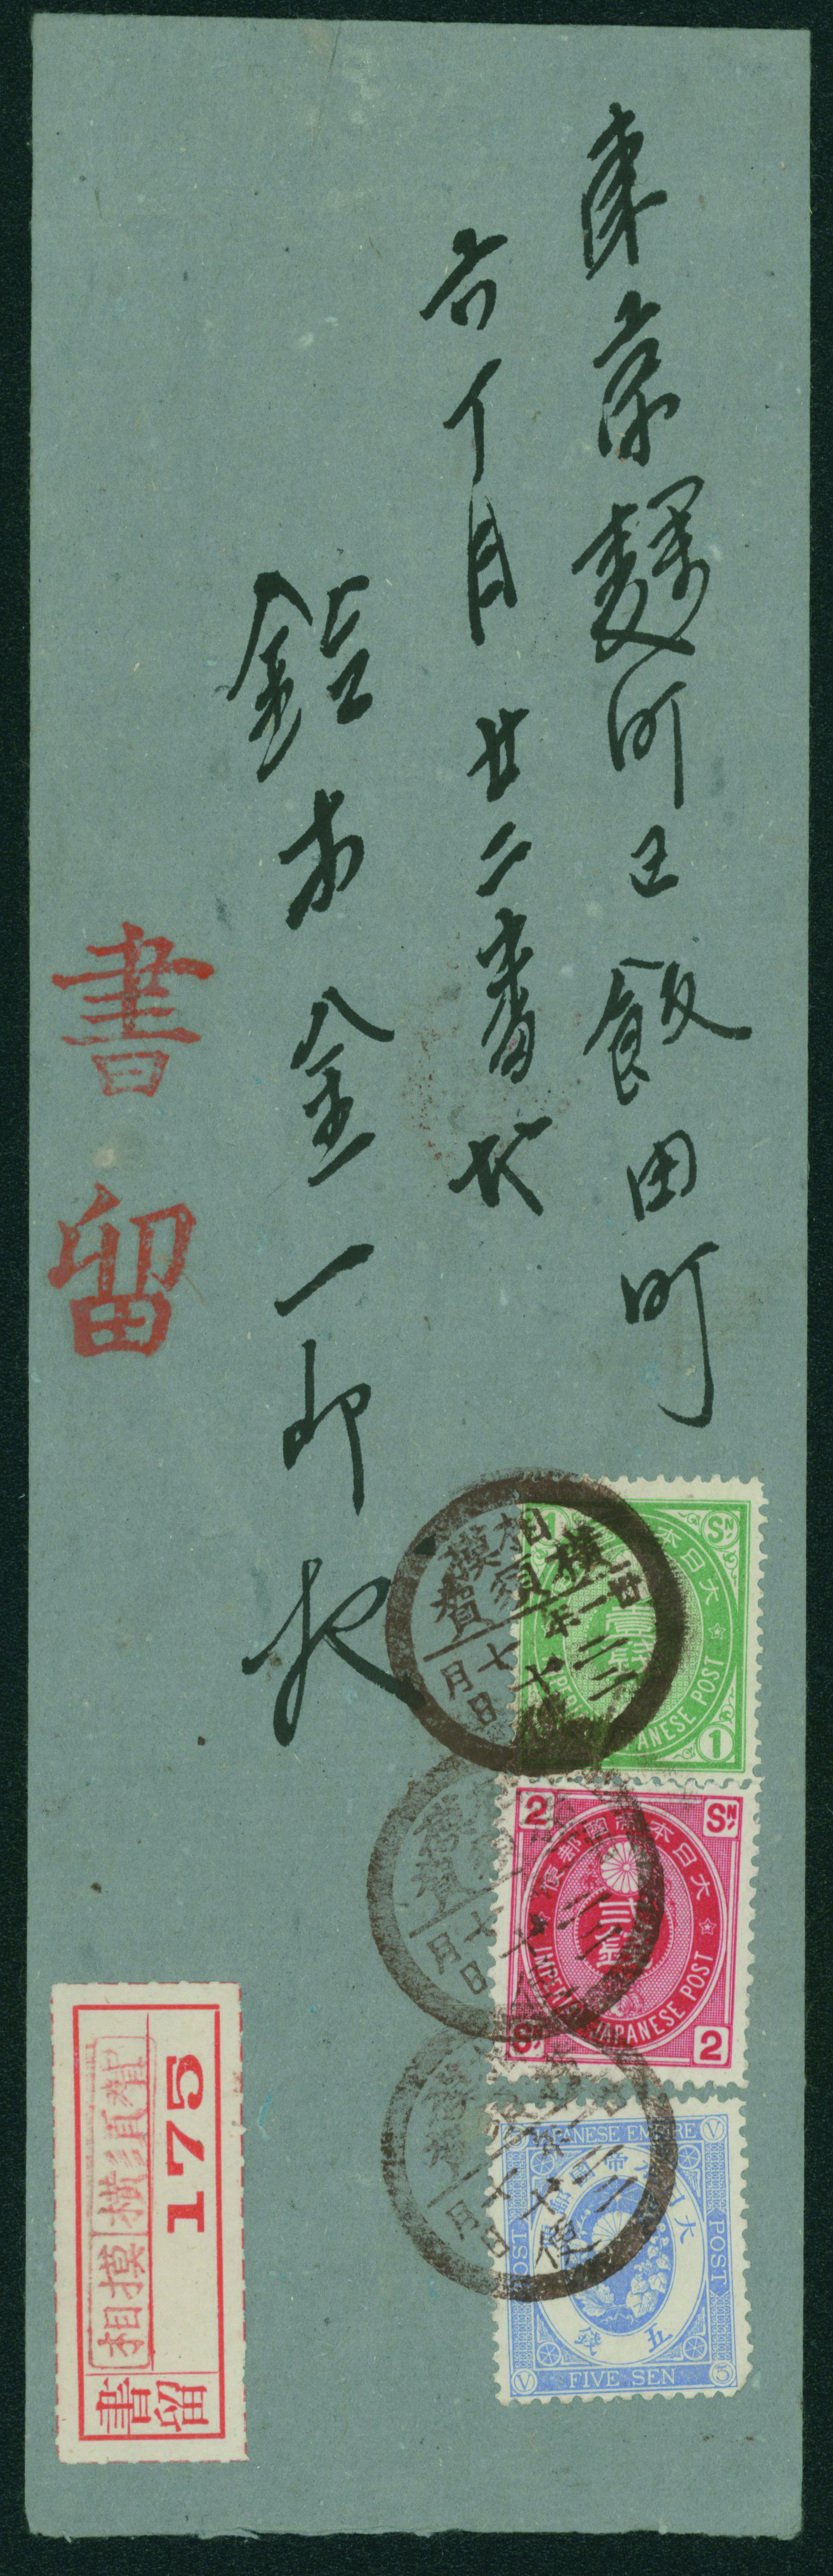 東京麹町区飯田町
六丁目廿二番地
鈴木金一郎
書留
相模
横須賀
廿一年
二月
十七日
SN
1
大日本
壹銭
IMPERIAL JAPANESE POST
1
2
SN
大日本帝國郵便
貳銭
IMPERIAL JAPANESE POST
SN
2
JAPANESE EMPIRE
V
POST
POST
大日本帝國郵
五銭
V
FIVE SEN
5
便
175
相摸
横須賀
書留